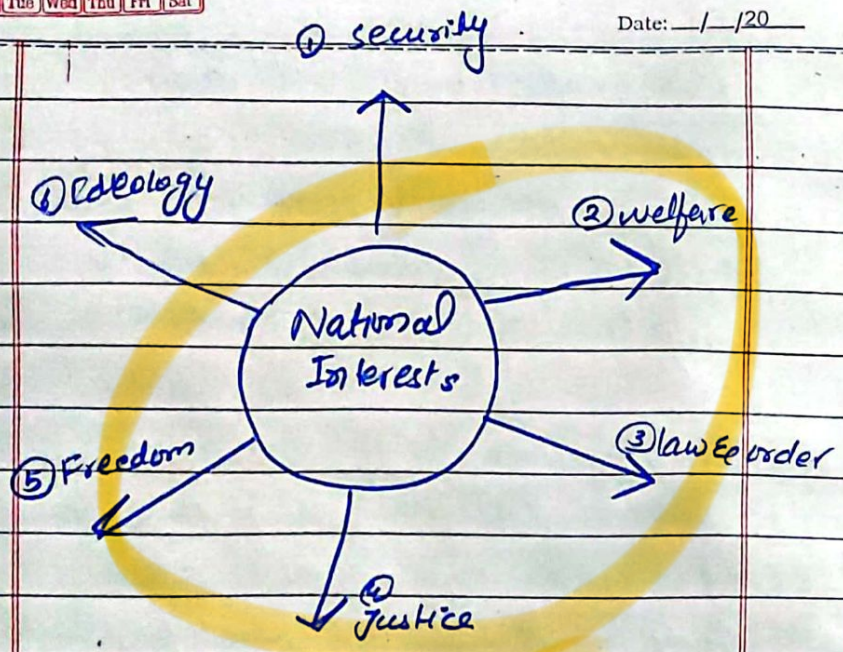 Tue Wed Thu Fri Sat
Date: / /20
① security
⑥ Ideology
② welfare
National
Interests
③ law & order
⑤ Freedom
④
Justice